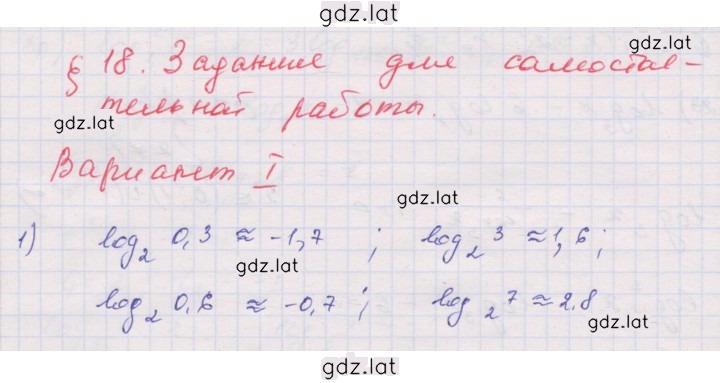 gdz.lat
§ 18. Задание для самостоя-
gdz.lat
тельной работы.
gdz.lat
Вариант I
gdz.lat
1) log₂ 0,3 ≈ -1,7 ; log₂ 3 ≈ 1,6;
gdz.lat
log₂ 0,6 ≈ -0,7 ; log₂ 7 ≈ 2,8
gdz.lat
gdz.lat